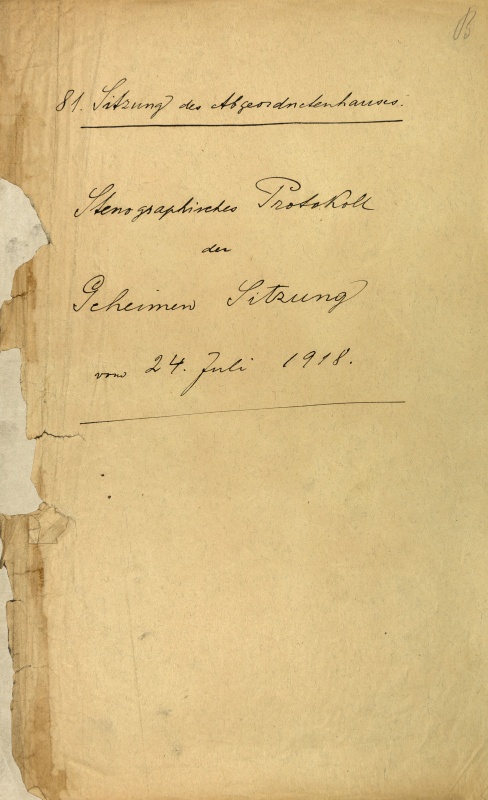 81. Sitzung des Abgeordnetenhauses.
Stenographisches Protokoll
der
Geheimen Sitzung
vom 24. Juli 1918.